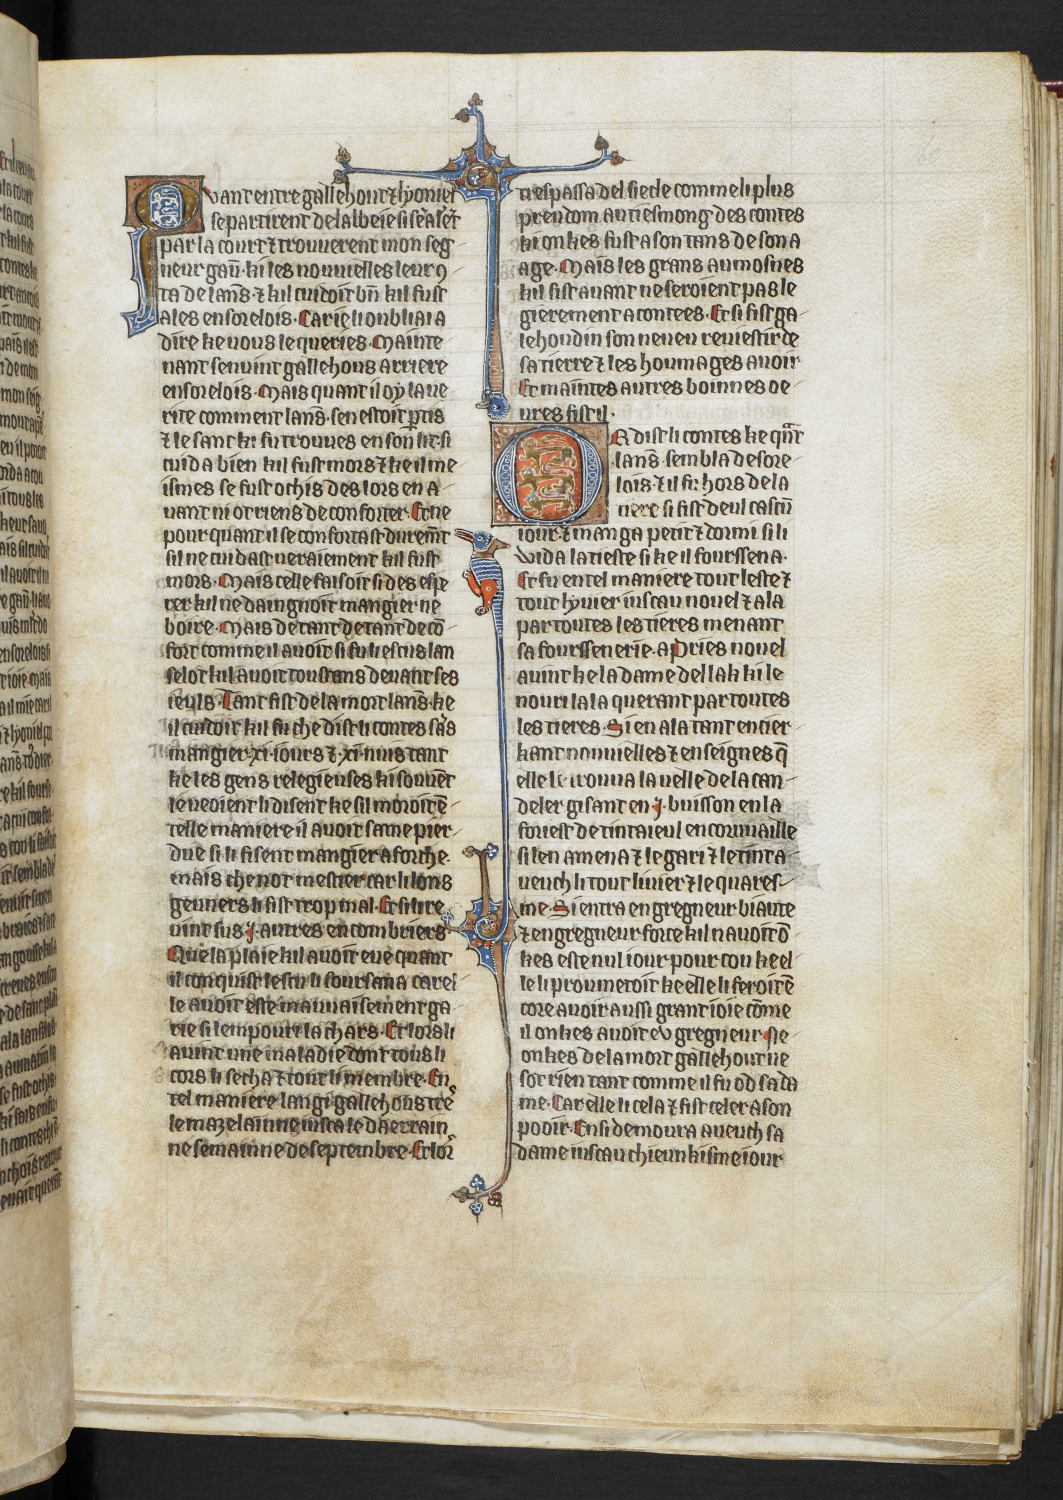 Quant entre gallehout ⁊ lyoniel
se partirent de labbeie si sen aleꝛt
par la court ⁊ trouuerent mon seg
neur gau᷑. ki les nouuielles leur 9
ta de lans̄. ⁊ kil cuidoit bn̄ kil fust
ales en sorelois. Car ie li oubliai a
dire ke uous le queries. Mainte
nant sen uint gallehous arriere
en sorelois. Mais quant il oy la ue
rite comment lans̄. sen estoit ꝑtis
⁊ le sanc ki fu troues en son lit. si
cuida bien kil fust mors ⁊ ke il me
ismes se fust ochis des lors en a
uant ni ot riens de conforter. Et ne
pour quant il se confortast duremt̄
sil ne cuidast ueraiement kil fust
mors. Mais celle faisoit si des espe
rer kil ne daingnoit mangier ne
boire. Mais de tant de tant de cō
fort comme il auoit si fu li escus lan
selot kil auoit tous tans deuant ses
ieuls. Tant fist de la mort lans̄. ke
il cuidoit kil fu che dist li contes sās
mangier .xi. iours ⁊ .xi. nuis tant
ke les gens relegieuses ki souuēt
le ueoient li disent ke sil moroit ē
telle maniere il auoit same pier
due si li fisent mangier a forche.
mais che not mestier car li lons
geuners li fist trop mal. Et si li re
uint sus .j. autres encombriers
Que la plaie kil auoit eue quant
il conquist lescu li soursana car el
le auoit este mauuaisement ga
rie si len pouri la chars. Et lors li
auint une maladie dont tous li
cors li secha ⁊ tout li membre. En
tel maniere langi gallehous tre
le mazelainne iusca le daerrain
ne semainne de septembre. Et lor
trespassa del siecle comme li plus
preudom au tiesmong des contes
ki onkes fust a son tans de son a
age. Mais les grans aumosnes
kil fist auant ne seroient pas le
gierement acontees. Et si fist ga
lehoudin son neueu reuiestir de
sa tierre ⁊ les houmages auoir
Et maintes autres boinnes oe
ures fist il.
Or dist li contes ke qn̄t
lans̄. sembla de sore
lois ⁊ il fu hors de la
tiere si fist deul cascū
iour. ⁊ manga petit ⁊ dormi si li
wida la tieste si ke il foursena.
Et fu en tel maniere tout leste ⁊
tout lyuier iuscau nouel ⁊ ala
par toutes les tieres menant
sa foursenerie. apries nouel
auint ke la dame del lak ki le
nouri lala querant par toutes
les tieres. Si en ala tant enciēr
kant nouuielles ⁊ enseignes q̄
elle le trouua la uelle de la can
deler gisant en .j. buisson en la
foriest de tintaieul en cornuaille
si len amena ⁊ le gari ⁊ le tint a
uench li tout liuier ⁊ le quares
me. Si entra en gregneur biaute
⁊ en gregneur force kil nauoit ō
kes este nul iour pour cou ke el
le li proumetoit ke elle li feroit ē
core auoir aussi grant ioie cōme
il onkes auoit eu gregneur. Ne
onkes de la mort gallehout ne
sot rien tant comme il fu od sa da
me. Car elle li cela ⁊ fist celer a son
pooir. Ensi demoura auench sa
dame iuscau chieunkisme iour